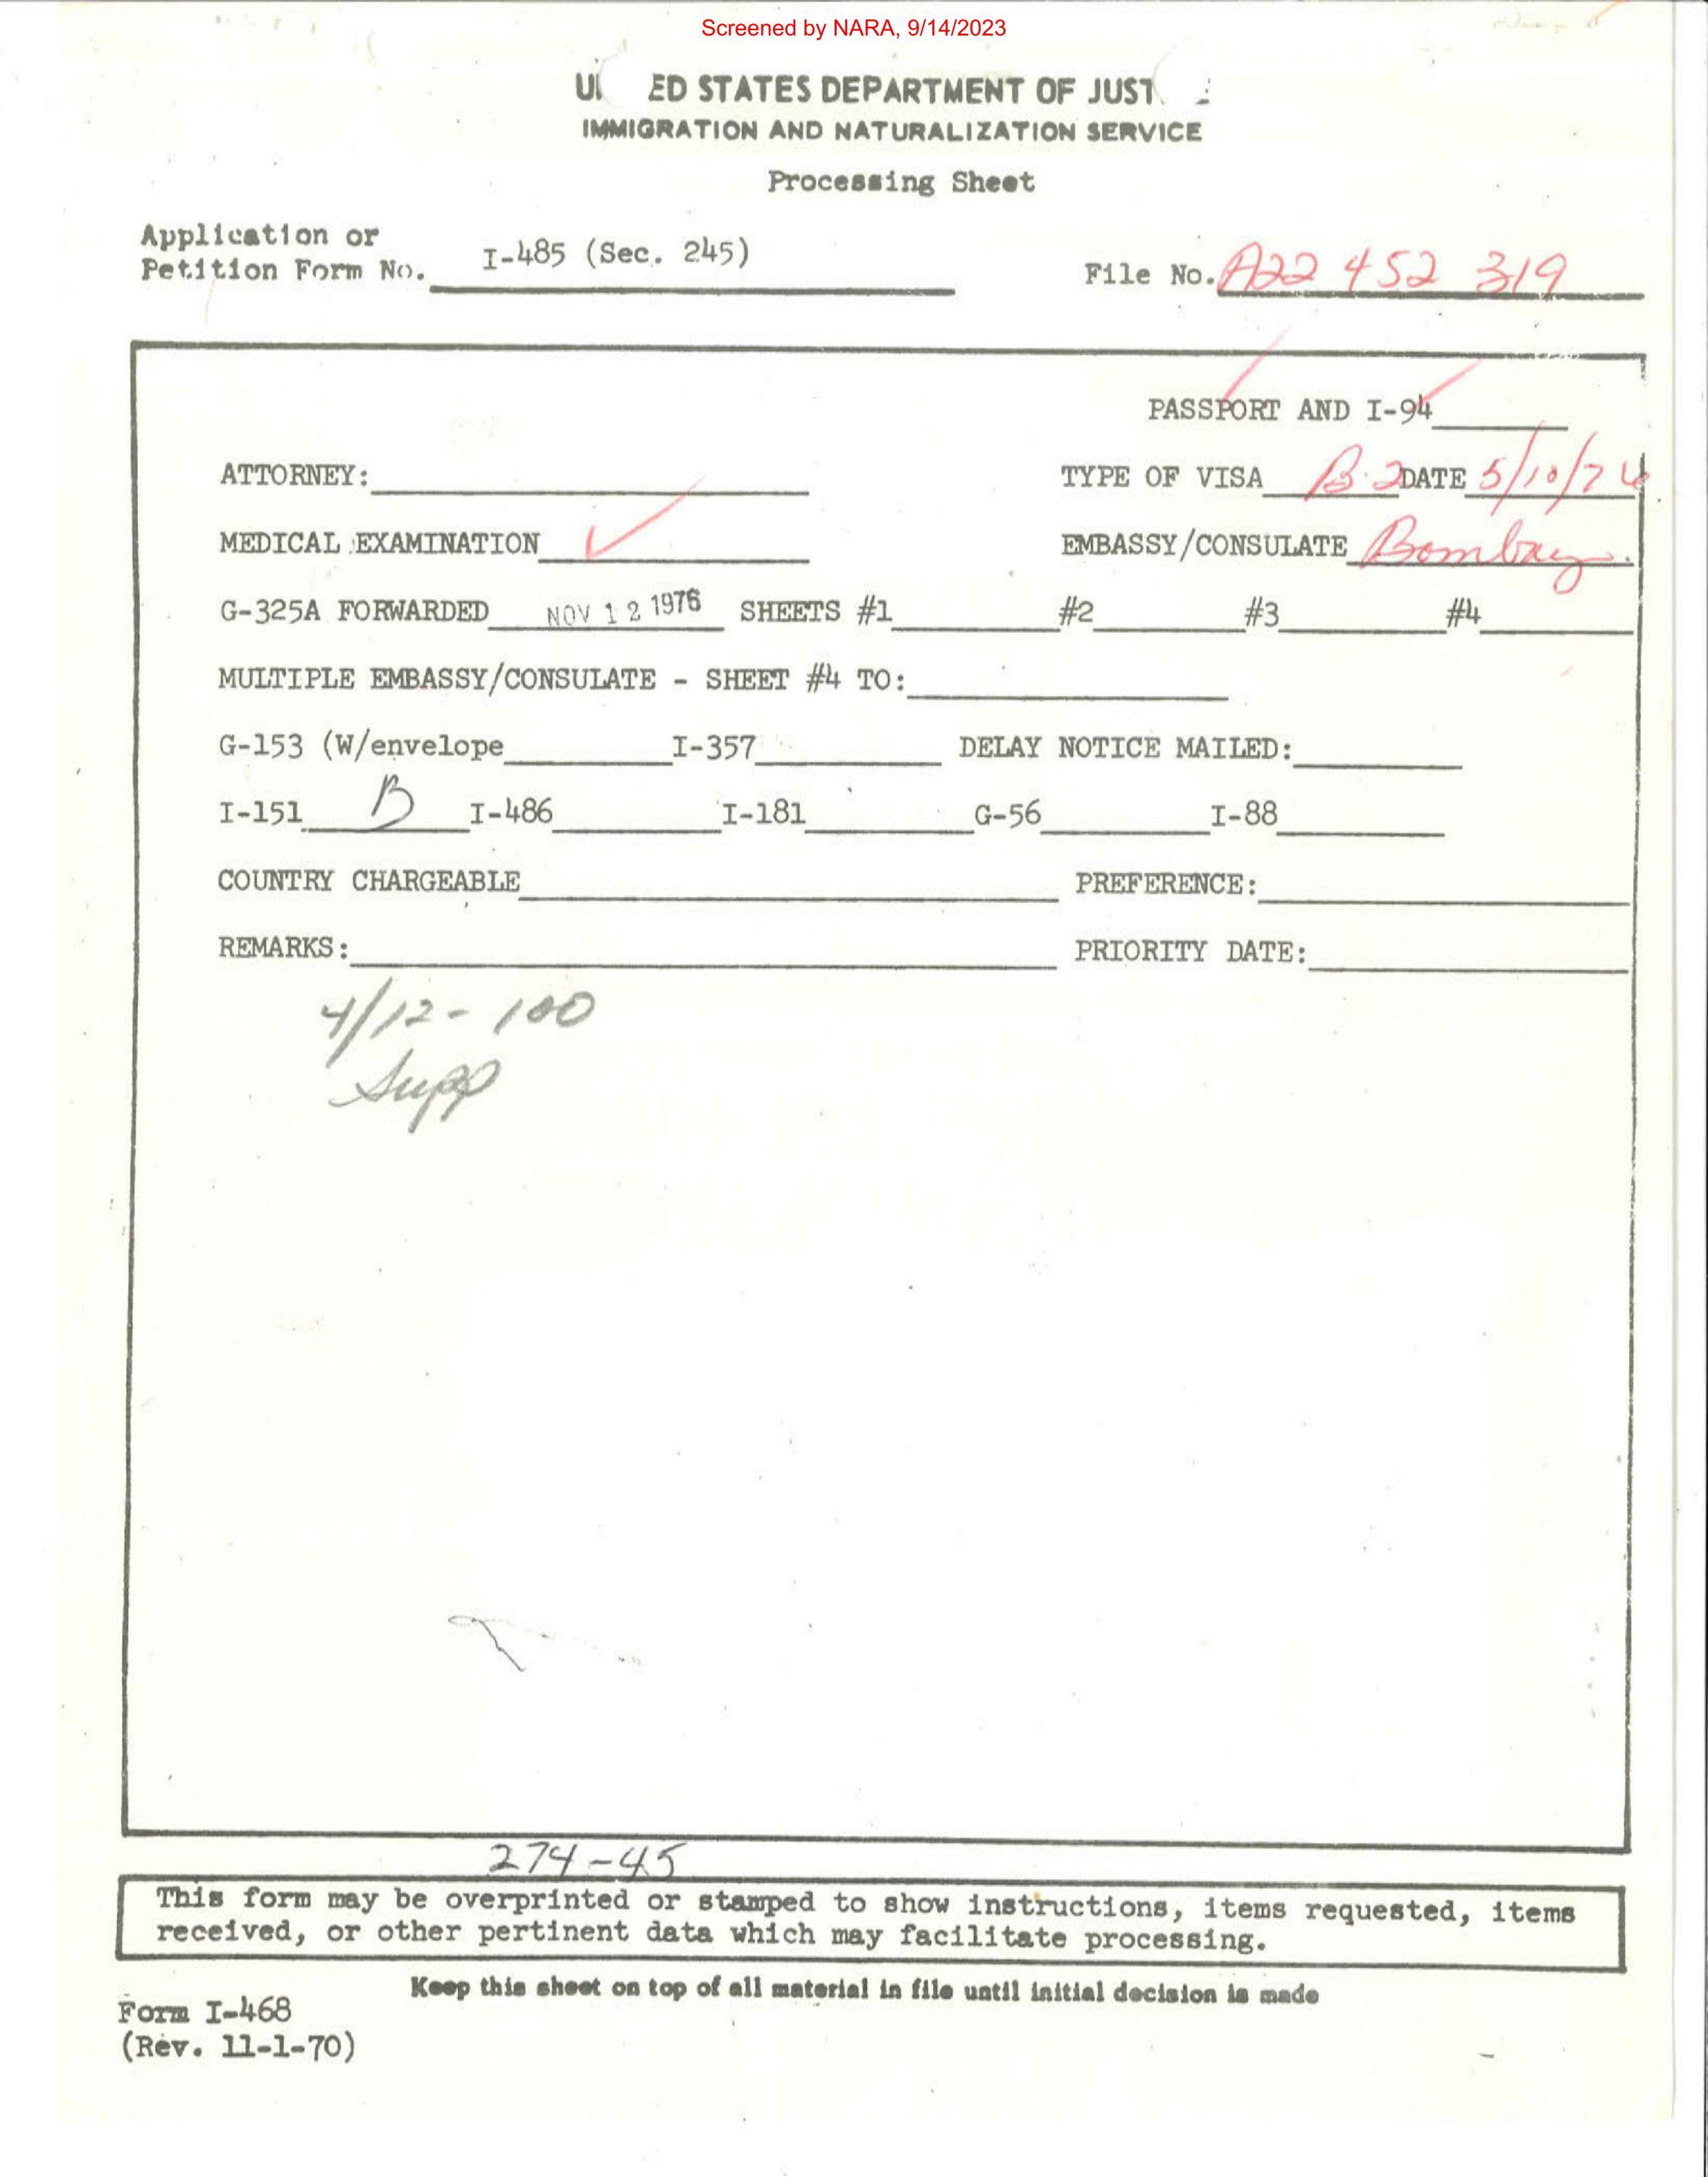 Screened by NARA, 9/14/2023
U ED STATES DEPARTMENT OF JUST
IMMIGRATION AND NATURALIZATION SERVICE
Processing Sheet
Application or
Petition Form No. I-485 (Sec. 245)
File No. A22 452 319
PASSPORT AND I-94
ATTORNEY: TYPE OF VISA B-2 DATE 5/10/76
MEDICAL EXAMINATION EMBASSY/CONSULATE Bombay.
G-325A FORWARDED NOV 12 1976 SHEETS #1 #2 #3 #4
MULTIPLE EMBASSY/CONSULATE - SHEET #4 TO:
G-153 (W/envelope I-357 DELAY NOTICE MAILED:
I-151 B I-486 I-181 G-56 I-88
COUNTRY CHARGEABLE PREFERENCE:
REMARKS: PRIORITY DATE:
4/12 - 100
Supp
274-45
This form may be overprinted or stamped to show instructions, items requested, items
received, or other pertinent data which may facilitate processing.
Keep this sheet on top of all material in file until initial decision is made
Form I-468
(Rev. 11-1-70)